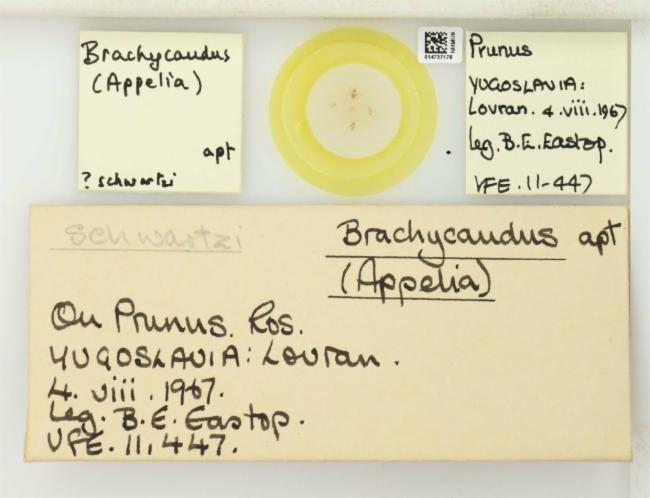 Brachycaudus
(Appelia)
apt
? schwartzi
014737176
Prunus
YUGOSLAVIA:
Lovran. 4.viii.1967
leg. B.E. Eastop.
VFE. 11-447
Schwartzi
Brachycaudus apt
(Appelia)
On Prunus. Ros.
YUGOSLAVIA: Lovran.
4. viii. 1967.
Leg. B.E. Eastop.
VFE. 11,447.